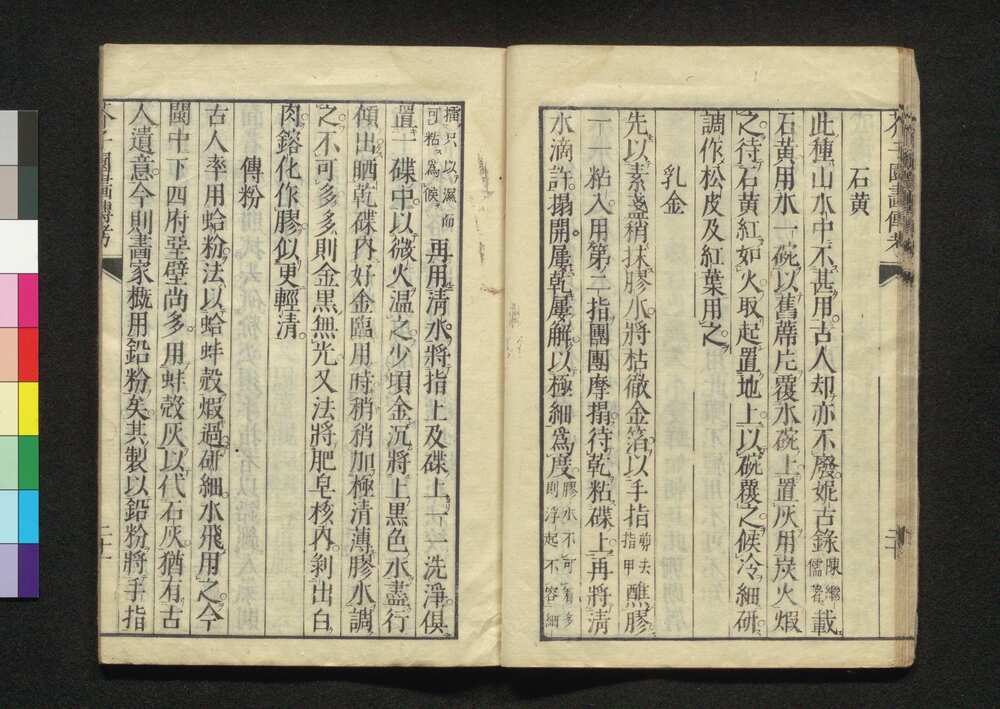 石黃
此種山水中不甚用古人却亦不廢妮古錄陳繼儒著載
石黃用水一碗以舊蓆片覆水碗上置灰用炭火煆
之待石黃紅如火取起置地上以碗覆之候冷細研
調作松皮及紅葉用之
乳金
先以素盞稍抹膠水將枯徹金箔以手指剪去指甲醮膠
一一粘入用第二指團團摩搨待乾粘碟上再將清
水滴許搨開屢乾屢解以極細爲度膠水不可着多則浮起不容細
擂只以濕而可粘爲候再用清水將指上及碟上一洗淨俱
置一碟中以微火温之少頃金沉將上黑色水盡行
傾出晒乾碟內好金臨用時稍稍加極清薄膠水調
之不可多多則金黑無光又法將肥皂核內剝出白
肉鎔化作膠似更輕清
傳粉
古人率用蛤粉法以蛤蚌殼煆過研細水飛用之今
閩中下四府堊壁尚多用蚌殼灰以代石灰猶有古
人遺意今則畫家概用鉛粉矣其製以鉛粉將手指